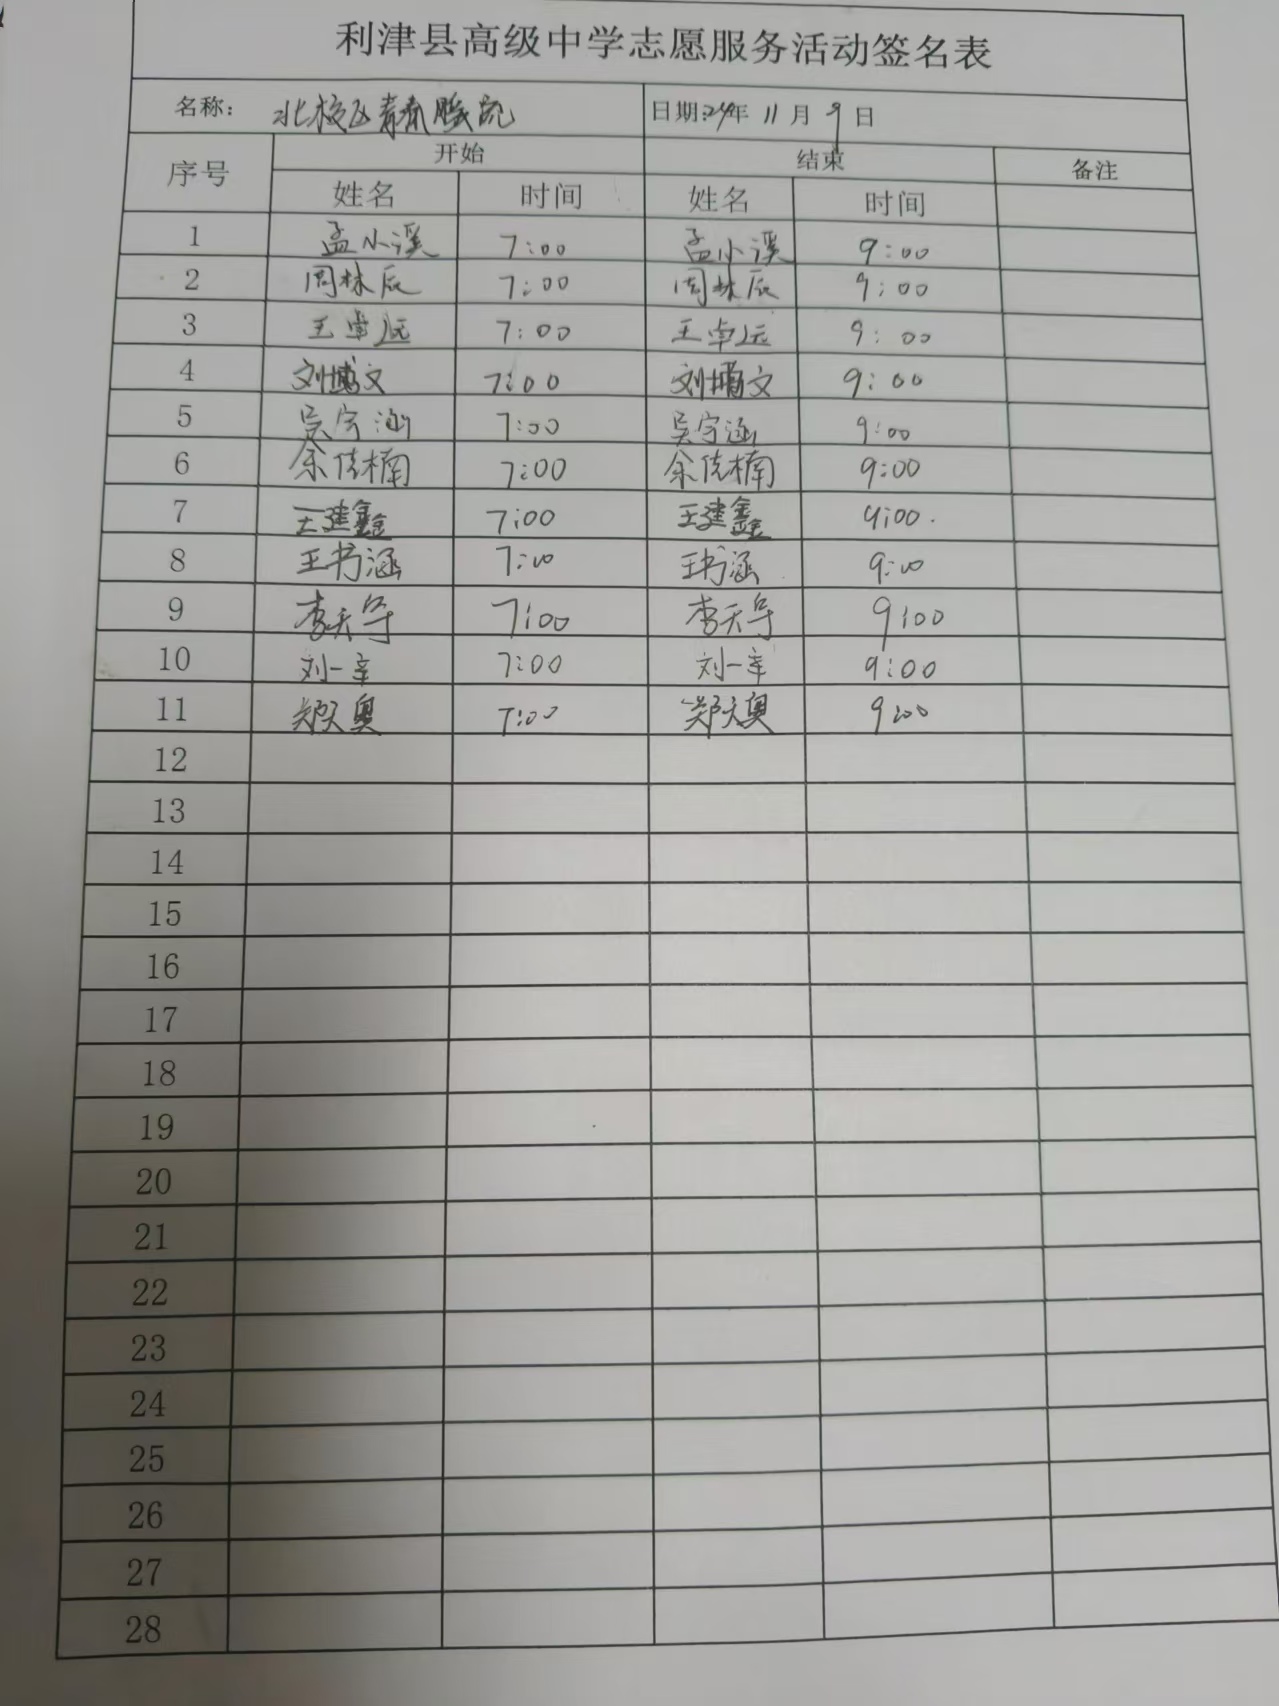 利津县高级中学志愿服务活动签名表
名称: 北校区青春 日期:24年 11月 9日
序号 开始 结束 备注
姓名 时间 姓名 时间
1 孟小溪 7:00 孟小溪 9:00
2 周林辰 7:00 周林辰 9:00
3 王卓远 7:00 王卓远 9:00
4 刘博文 7:00 刘博文 9:00
5 吴宇涵 7:00 吴宇涵 9:00
6 余佳楠 7:00 余佳楠 9:00
7 王建鑫 7:00 王建鑫 9:00.
8 王书涵 7:00 王书涵 9:00
9 李天宇 7:00 李天宇 9:00
10 刘一辛 7:00 刘一辛 9:00
11 郑天奥 7:00 郑天奥 9:00
12
13
14
15
16
17
18
19
20
21
22
23
24
25
26
27
28